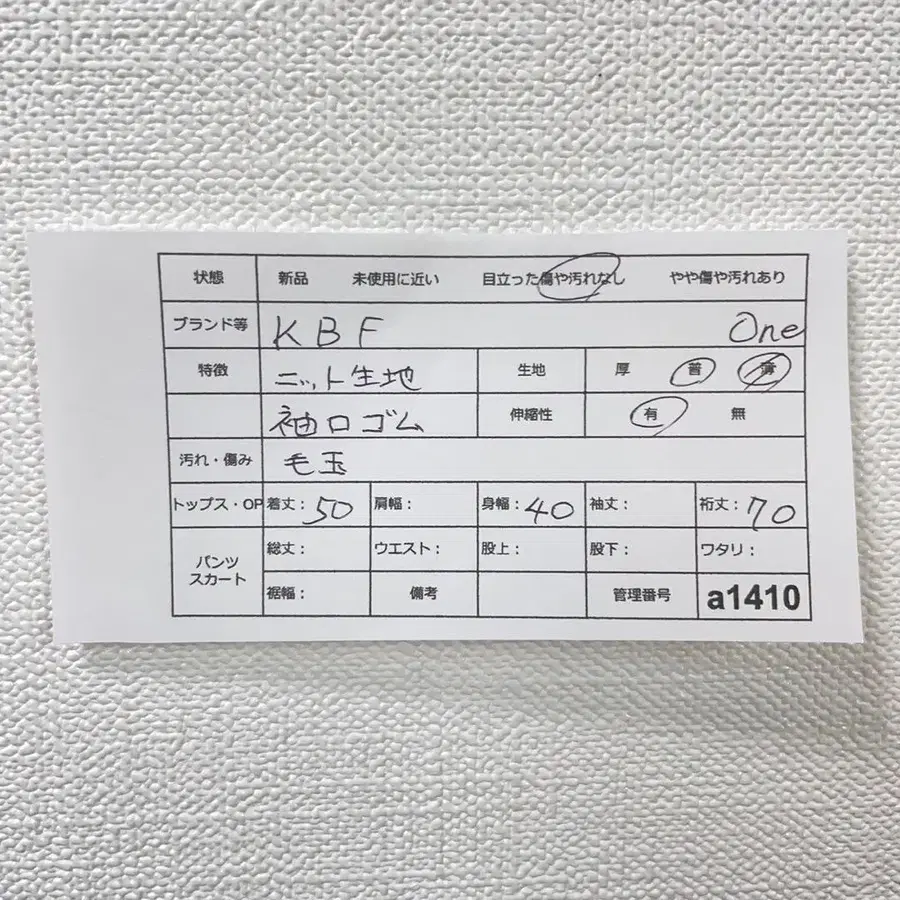 状態 新品 未使用に近い 目立った傷や汚れなし やや傷や汚れあり
ブランド等 KBF One
特徴 ニット生地 生地 厚 普 薄
袖口ゴム 伸縮性 有 無
汚れ・傷み 毛玉
トップス・OP 着丈：50 肩幅： 身幅：40 袖丈： 裄丈：70
パンツ スカート 総丈： ウエスト： 股上： 股下： ワタリ：
裾幅： 備考 管理番号 a1410